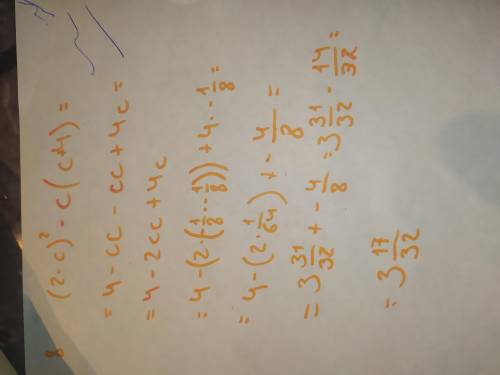 8 (2-c)² - c(c+4) =
= 4 - cc - cc + 4c =
= 4 - 2cc + 4c
= 4 - (2·(-1/8·-1/8)) + 4·-1/8 =
= 4 - (2·1/64) + -4/8 =
= 3 31/32 + -4/8 = 3 31/32 - 14/32 =
= 3 17/32